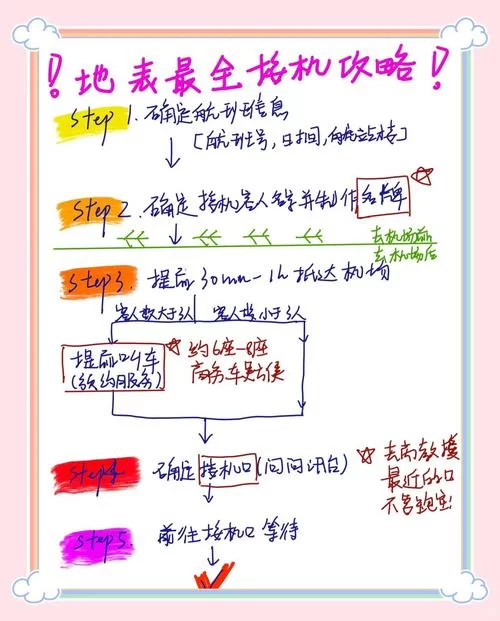 ！地表最全接机攻略！
Step 1. 确定航班信息
[航班号，时间，航站楼]
Step 2. 确定接机客人名字并制作名牌
去机场前
去机场后
Step 3. 提前30min-1h抵达机场
客人数大于3人
客人数小于3人
提前叫车
(预约服务)
约6座-8座
商务车
Step 4. 确定接机口(问问讯台)
去离
最近的口
不容
Step 5. 前往接机口等待